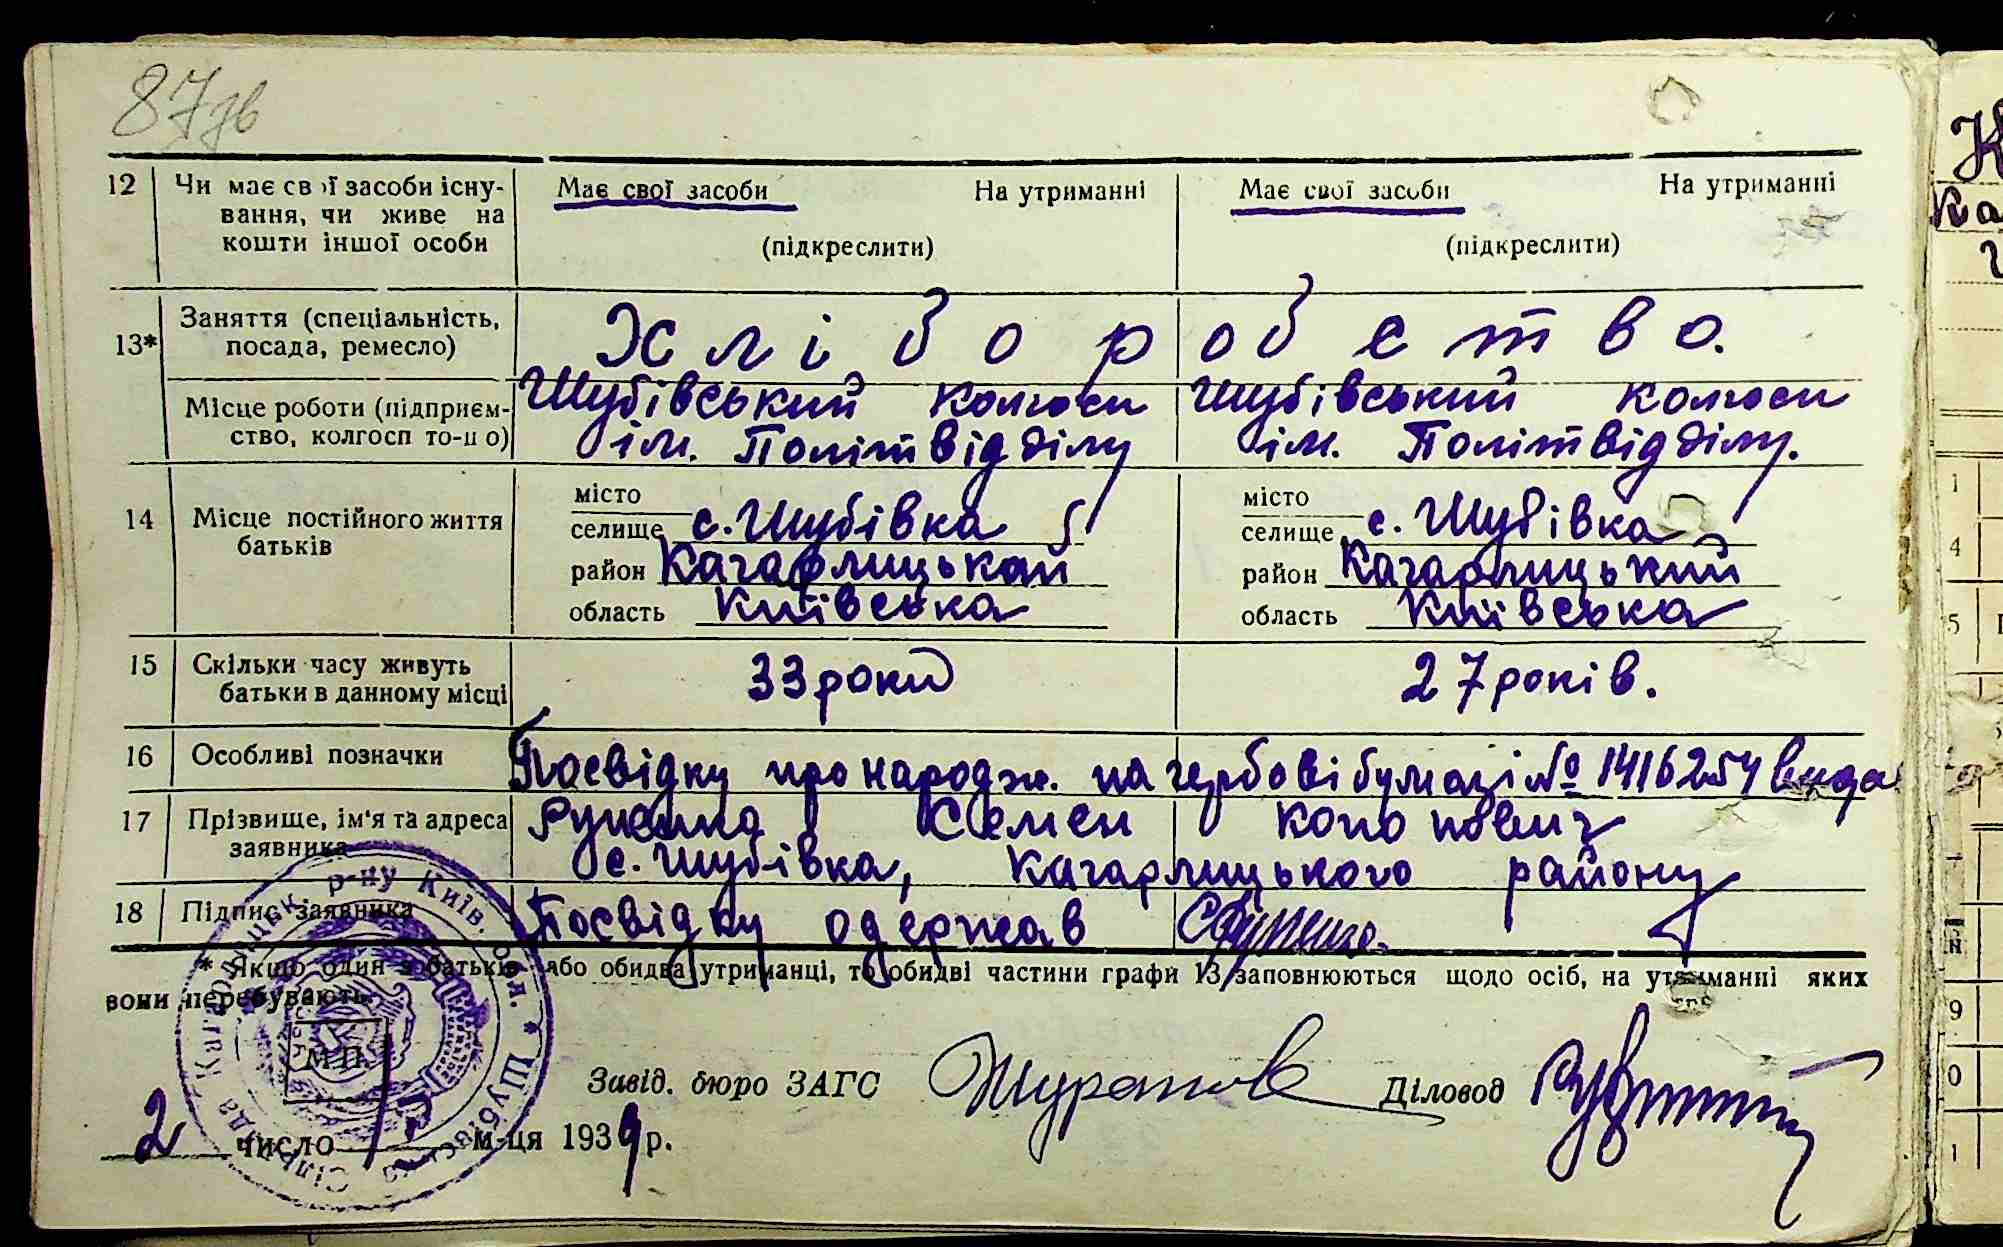 87зв
12 Чи має свої засоби існу- Має свої засоби На утриманні Має свої засоби На утриманні
вання, чи живе на
кошти іншої особи (підкреслити) (підкреслити)
13* Заняття (спеціальність, посада, ремесло) Хліборобство.
Місце роботи (підприєм- Шубівський колгосп Шубівський колгосп
ство, колгосп то-що) ім. Політвідділу ім. Політвідділу.
14 Місце постійного життя батьків
місто місто
селище с. Шубівка селище с. Шубівка
район Кагарлицький район Кагарлицький
область Київська область Київська
15 Скільки часу живуть 33 роки 27 років.
батьки в данному місці
16 Особливі позначки Посвідку про народж. на гербові бумазі № 1416254 вида
17 Прізвище, ім'я та адреса Семен
заявника с. Шубівка, Кагарлицького району
18 Підпис заявника Посвідку одержав
* Якщо один з батьків або обидва утриманці, то обидві частини графи 13 заповнюються щодо осіб, на утриманні яких
вони перебувають.
М.П.
Завід. бюро ЗАГС Діловод
2 число м-ця 1939 р.